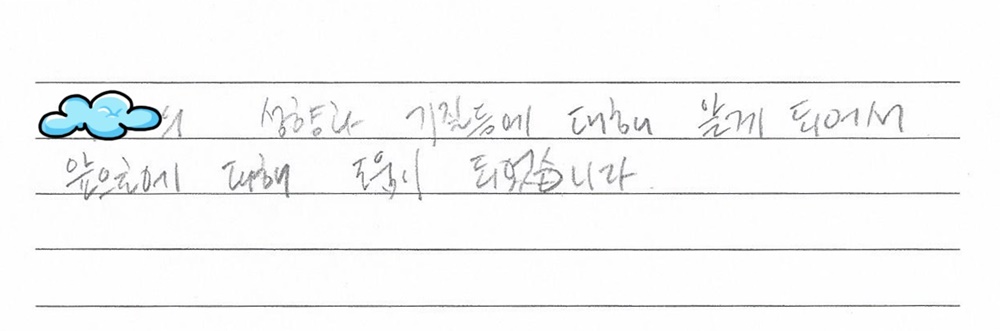 의 성향과 기질등에 대해 알게 되어서
앞으로에 대해 도움이 되었습니다